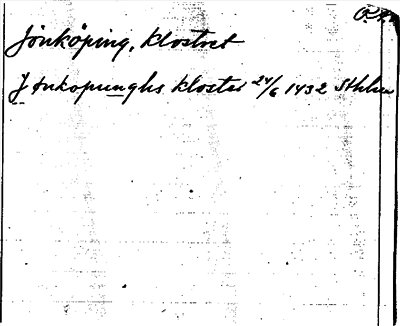 Jönköping, klostret
Jønkopunghs kloster 24/6 1432 Sthlm